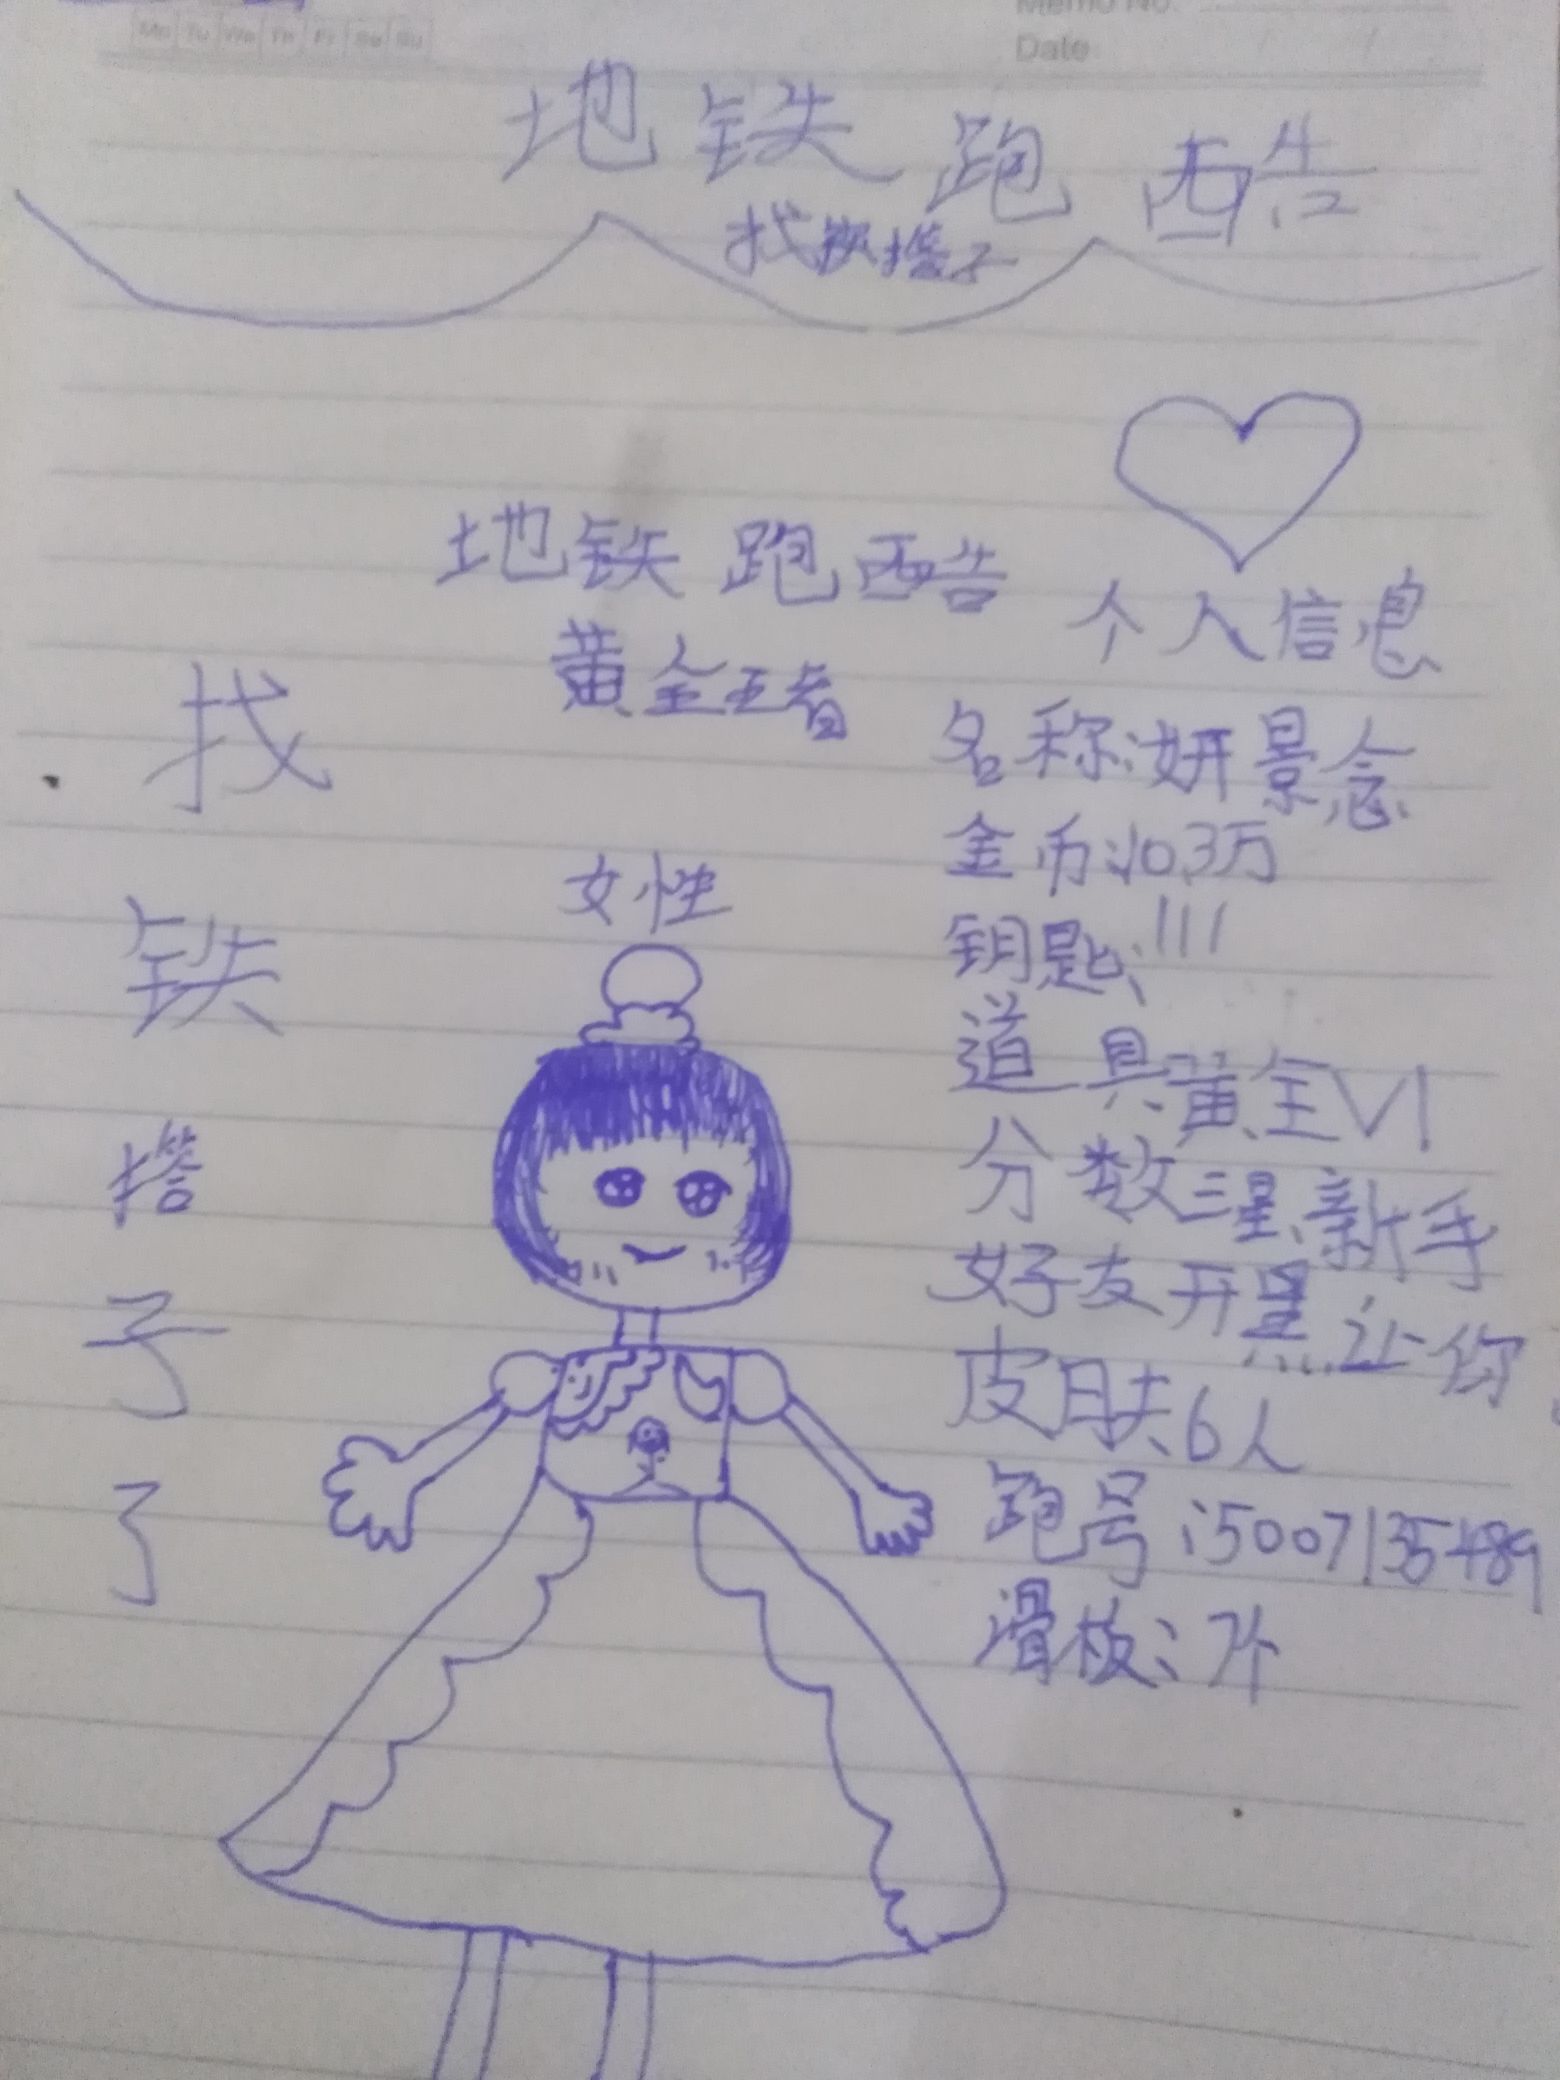 Mo Tu We Th Fr Sa Su
Memo No.
Date
地铁跑酷
找铁搭子
地铁跑酷
黄金王者
找
铁
搭
子
了
女性
个人信息
名称:妍景念
金币:10.3万
钥匙:111
道具黄金V1
分数三星、新手
好友开黑让你
皮肤6人
跑号:5007135489
滑板:7个